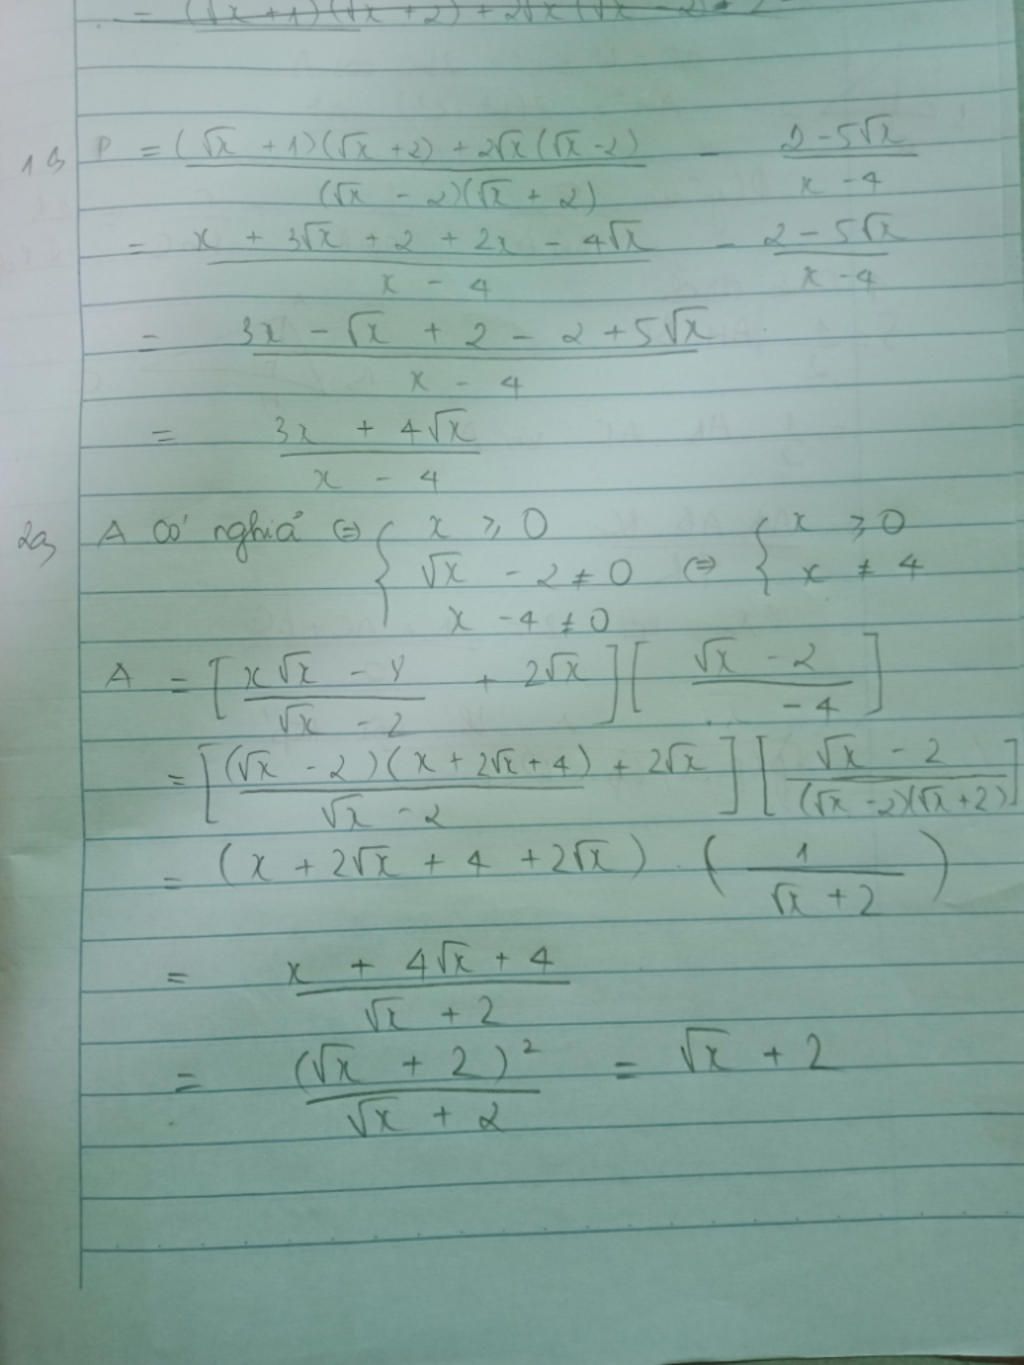 = (√x + 1)(√x + 2) + 2√x(√x - 2) +
1a, P = ((√x + 1)(√x + 2) + 2√x(√x - 2))/((√x - 2)(√x + 2)) - (2 - 5√x)/(x - 4)
= (x + 3√x + 2 + 2x - 4√x)/(x - 4) - (2 - 5√x)/(x - 4)
= (3x - √x + 2 - 2 + 5√x)/(x - 4)
= (3x + 4√x)/(x - 4)
2a, A có nghiã ⇔ { x ≥ 0 ; √x - 2 ≠ 0 ; x - 4 ≠ 0 ⇔ { x ≥ 0 ; x ≠ 4
A = [(x√x - 8)/(√x - 2) + 2√x][(√x - 2)/( - 4)]
= [((√x - 2)(x + 2√x + 4))/(√x - 2) + 2√x][(√x - 2)/((√x - 2)(√x + 2))]
= (x + 2√x + 4 + 2√x) . (1/(√x + 2))
= (x + 4√x + 4)/(√x + 2)
= (√x + 2)²/(√x + 2) = √x + 2